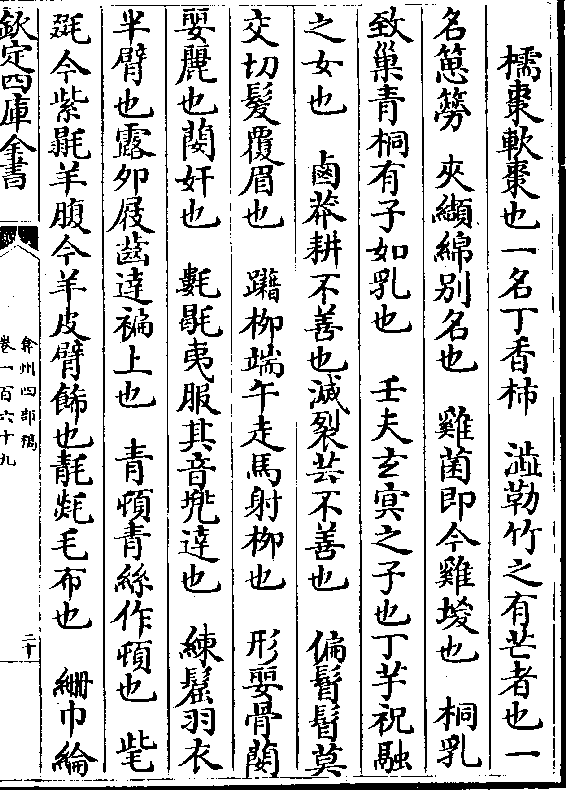 檽棗軟棗也一名丁香柿　澁勒竹之有芒者也一
名䓗䇯　夾纈綿別名也　雞菌即今雞㙡也　桐乳
致巢青桐有子如乳也　壬夫玄冥之子也丁芊祝融
之女也　鹵莽耕不善也滅裂芸不善也　偏髾髾莫
交切髮覆眉也　躤柳端午走馬射柳也　形婜骨閡
婜麗也閡奸也　氀毼夷服其音兠達也　練鬛羽衣
半臂也露夘屐齒達褊上也　青頓青絲作頓也　毞
毭今紫毼羊腹今羊皮臂飾也毻㲝毛布也　綳巾綸
欽定四庫全書
弇州四部稿
卷一百六十九
二十